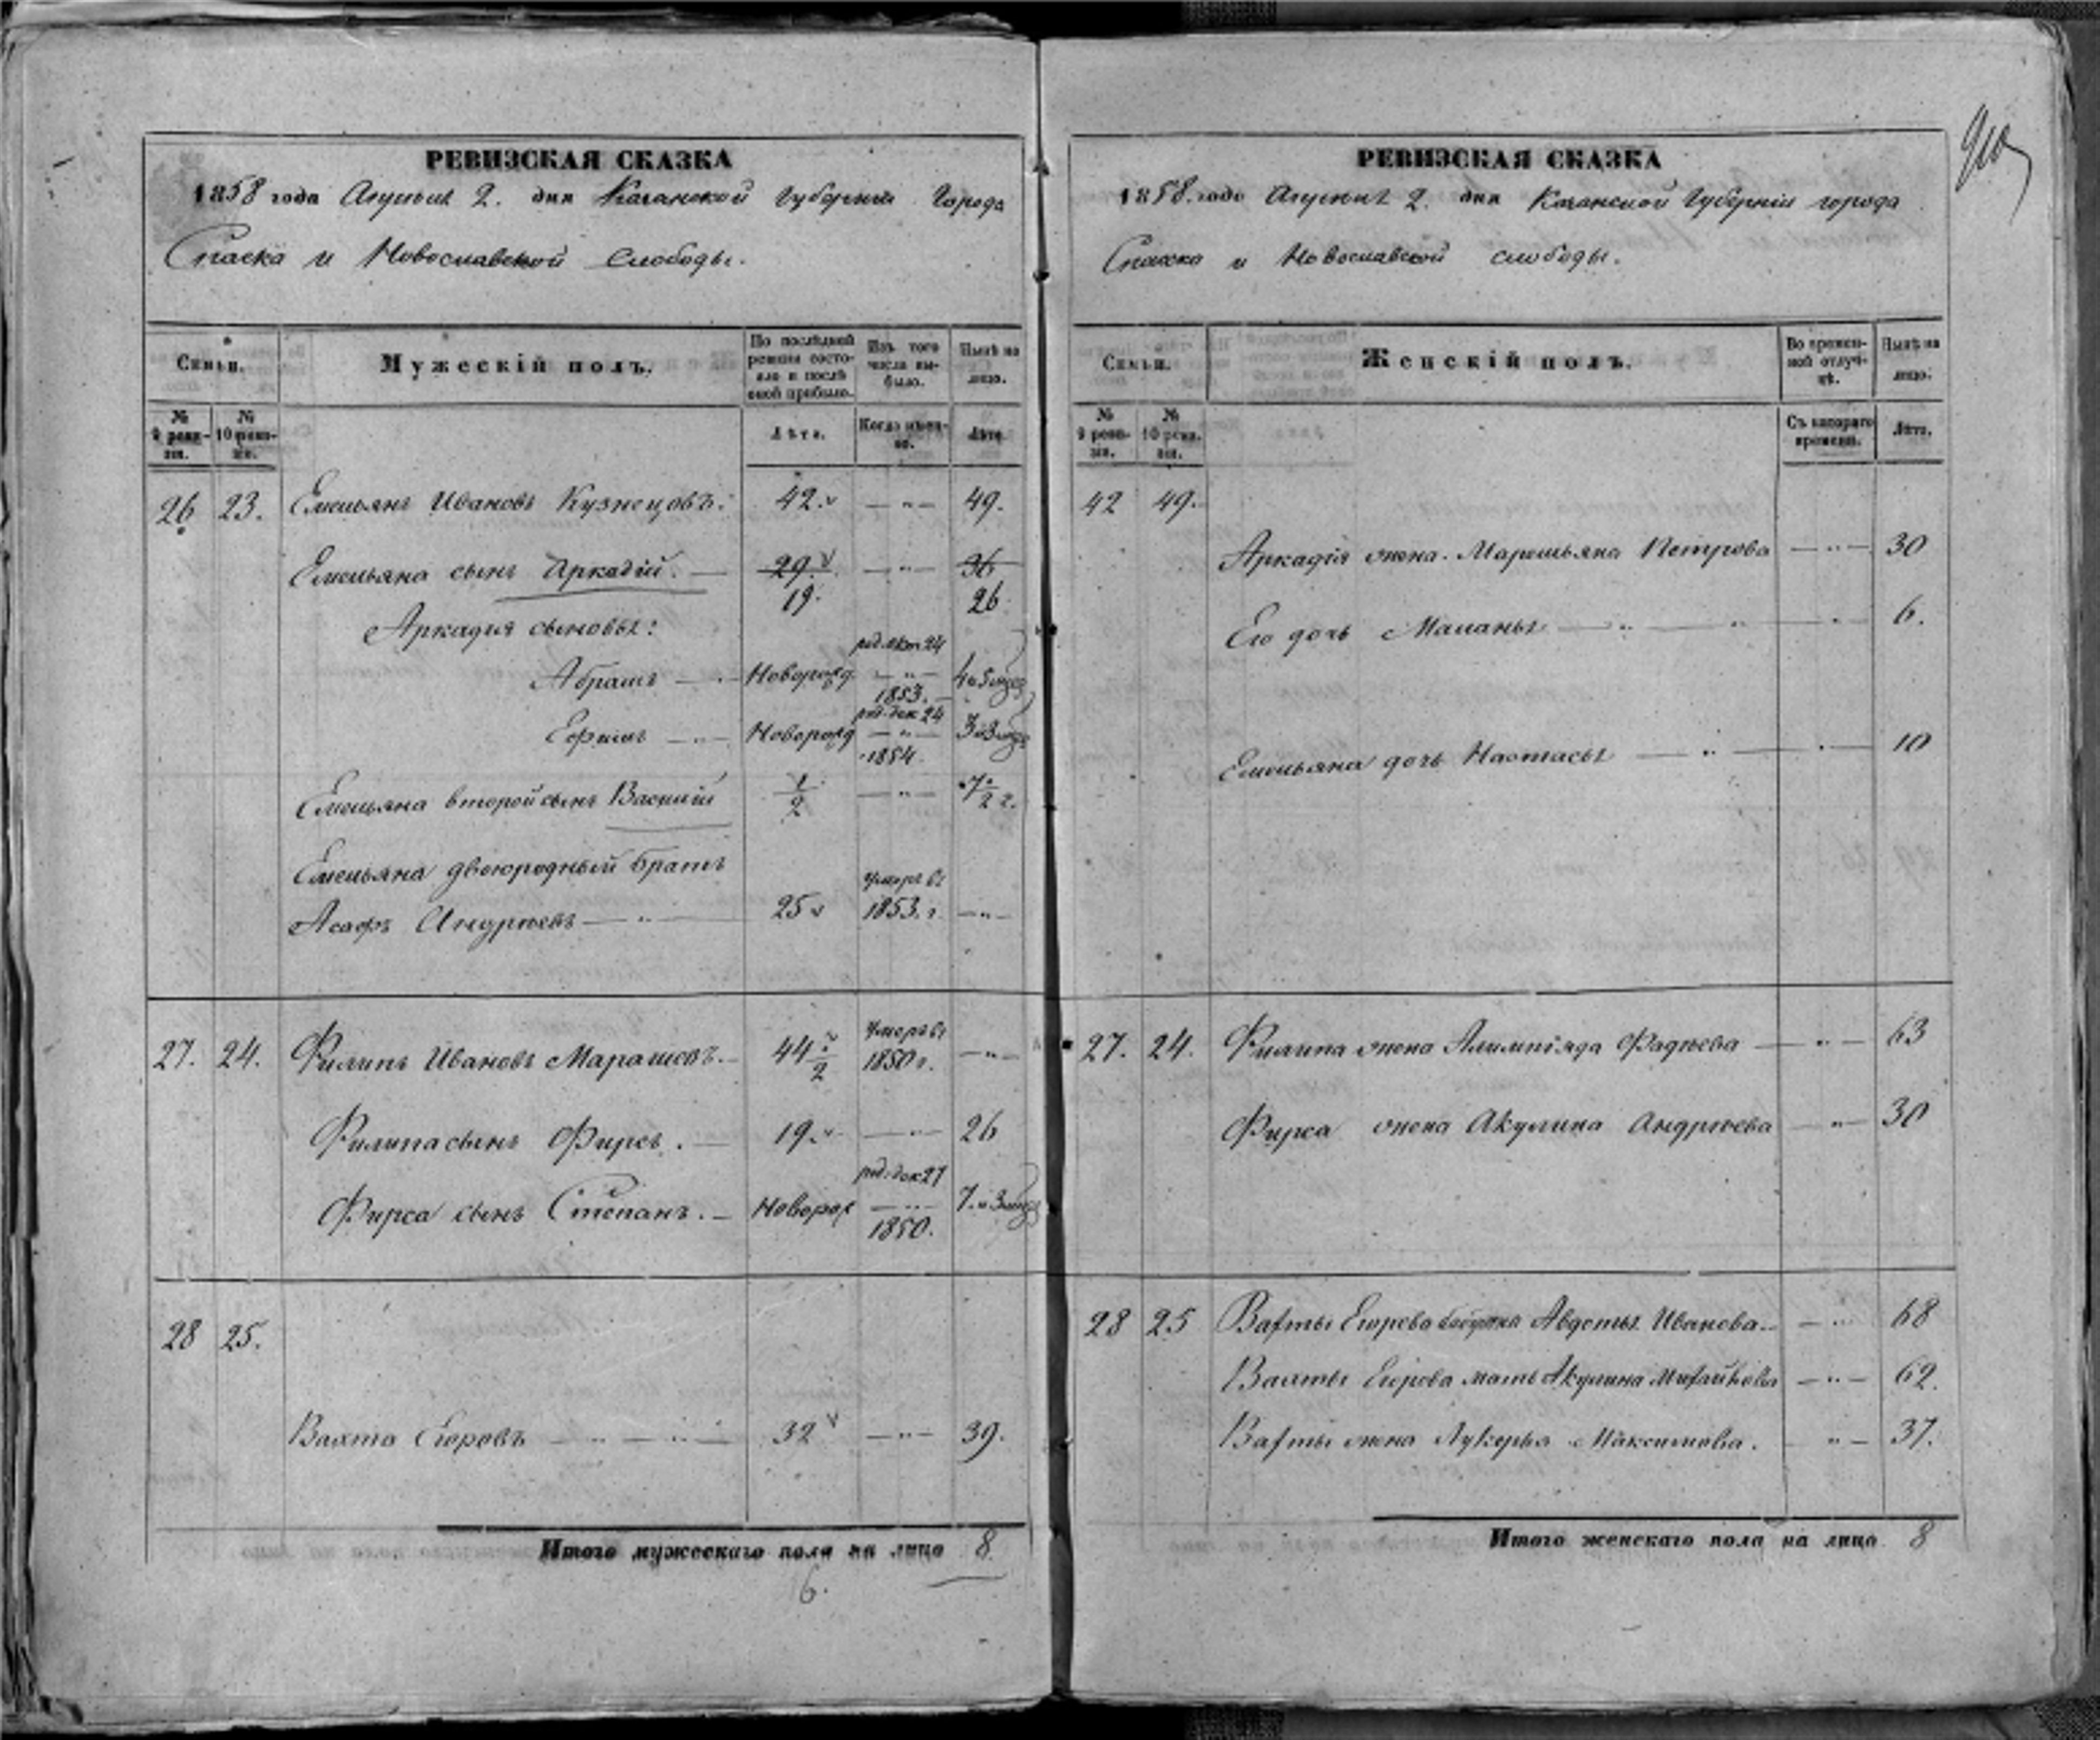 РЕВИЗСКАЯ СКАЗКА
1858 года Апреля 2. дня Казанской Губерніи Города
Спаска и Новославской Слободы.
Семьи.
Мужескій полъ.
По послѣдней ревизіи состояло и послѣ оной прибыло.
Изъ того числа выбыло.
Нынѣ на лицо.
№ 9 ревизіи.
№ 10 ревизіи.
Лѣта.
Когда именно.
Лѣта.
26 23. Емельянъ Ивановъ Кузнецовъ. 42. — " — 49.
Емельяна сынъ Аркадій. — 29. — " — 36
19. 26
Аркадія сыновья:
Абрамъ — Новорожд. род. окт. 24 1853. 4 и 5 мѣс
Ефимъ — Новорожд род. дек 24 1854. 3 и 3 мѣс
Емельяна второй сынъ Василій 1/2 — " — 7 1/2 г.
Емельяна двоюродный братъ
Асафъ Андреевъ — " — 25 умеръ въ 1853. г. — " —
27. 24. Филипъ Ивановъ 44 1/2 умеръ въ 1850 г. — " —
Филипа сынъ Фирсъ. — 19. — " — 26
Фирса сынъ Степанъ. — Новорож род. дек 27 1850. 7 и 3 мѣс
28 25.
Вахта Егоровъ — " — " — 32 — " — 39.
Итого мужескаго пола на лицо 8
6.
РЕВИЗСКАЯ СКАЗКА
1858. года Апреля 2. дня Казанской Губерніи города
Спаска и Новославской слободы.
Семьи.
Женскій полъ.
Во временной отлучкѣ.
Нынѣ на лицо.
№ 9 ревизіи.
№ 10 ревизіи.
Съ котораго времени.
Лѣта.
42 49.
Аркадія жена Маремьяна Петрова — " — 30
Его дочь Маланья — " — " — 6.
Емельяна дочь Настасья — " — 10
27. 24. Филипа жена Алимпіяда Фадѣева — " — 63
Фирса жена Акулина Андреева — " — 30
28 25 Вахты Егорова бабушка Авдотья Иванова — " — 68
Вахты Егорова мать Акулина Михайлова — " — 62.
Вахты жена Лукерья Максимова. — " — 37.
Итого женскаго пола на лицо 8